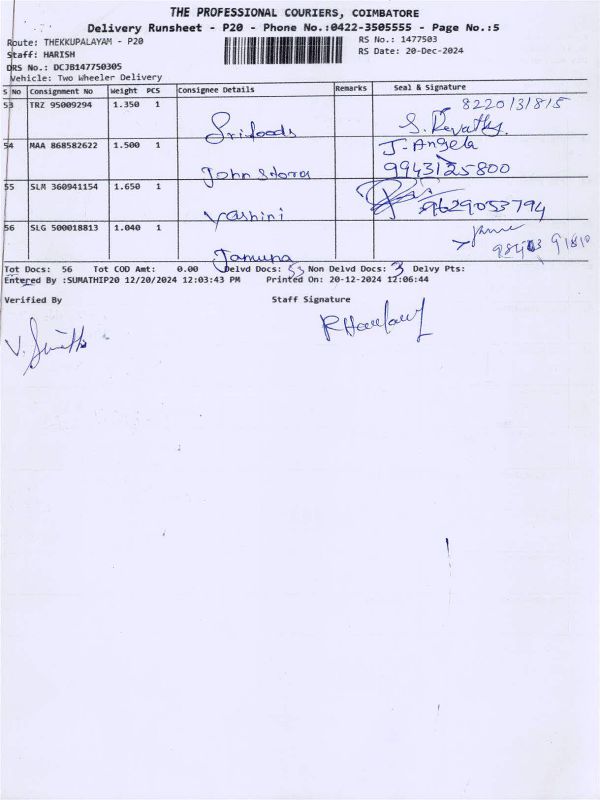 THE PROFESSIONAL COURIERS, COIMBATORE
Delivery Runsheet - P20 - Phone No.:0422-3505555 - Page No.:5
Route: THEKKUPALAYAM - P20
RS No.: 1477503
Staff: HARISH
RS Date: 20-Dec-2024
DRS No.: DCJB147750305
Vehicle: Two Wheeler Delivery
S No Consignment No Weight PCS Consignee Details Remarks Seal & Signature
53 TRZ 95009294 1.350 1
8220131815
Srifoods S. Revathy.
54 MAA 868582622 1.500 1 J. Angela
John Store 9943125800
55 SLM 360941154 1.650 1
Varshini 9629053794
56 SLG 500018813 1.040 1
Jamuna
Tot Docs: 56 Tot COD Amt: 0.00 Delvd Docs: 53 Non Delvd Docs: 3 Delvy Pts:
Entered By :SUMATHIP20 12/20/2024 12:03:43 PM Printed On: 20-12-2024 12:06:44
Verified By Staff Signature